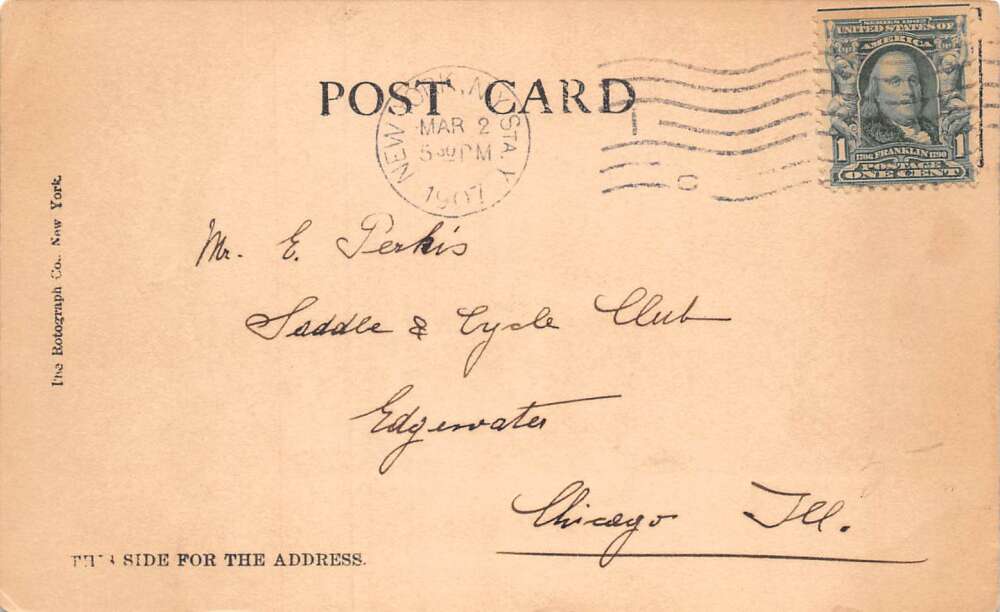 SERIES 1902
UNITED STATES OF
AMERICA
1706 FRANKLIN 1790
1 1
POSTAGE
ONE CENT
POST CARD
NEW YORK, N.Y. STA. Y
MAR 2
PM
1907
Mr. E. Perkis
Saddle & Cycle Club
Edgewater
Chicago Ill.
The Rotograph Co., New York.
SIDE FOR THE ADDRESS.